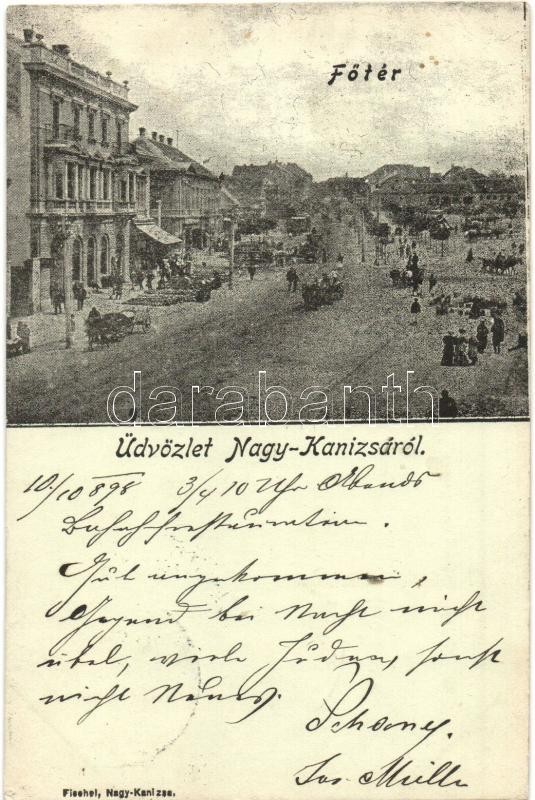 Főtér
darabanth
Üdvözlet Nagy-Kanizsáról.
10./10 898 3/4 10 Uhr Abends
Bahnhofrestauration.
Gut angekommen,
Gegend bei Nacht nicht
übel, viele Juden, sonst
nicht Neues.
Fischel, Nagy-Kanizsa.